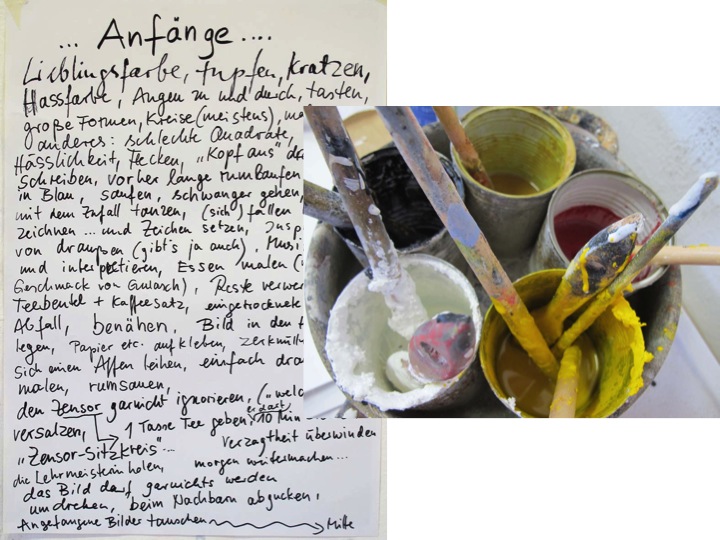 ... Anfänge ....
Lieblingsfarbe, tupfen, kratzen,
Hassfarbe, Augen zu und durch, tasten,
große Formen, Kreise (meistens),
anderes: schlechte Quadrate,
Hässlichkeit, Flecken, „Kopf aus"
schreiben, vorher lange rumlaufen
in Blau, saufen, schwanger gehen,
mit dem Zufall tanzen, (sich) fallen
zeichnen ... und Zeichen setzen,
von draußen (gibt's ja auch).
und interpretieren, Essen malen
Geschmack von Gulasch), Reste
Teebeutel + Kaffeesatz,
Abfall, benähen, Bild in den
legen, Papier etc. aufkleben,
sich einen Affen leihen, einfach
malen, rumsauen,
den Zensor garnicht ignorieren,
versalzen, 1 Tasse Tee geben, 10 Min
„Zensor-Sitzkreis"... Verzagtheit überwinden
die Lehrmeisterin holen, morgen weitermachen...
das Bild darf garnichts werden
umdrehen, beim Nachbarn abgucken,
Angefangene Bilder tauschen Mitte